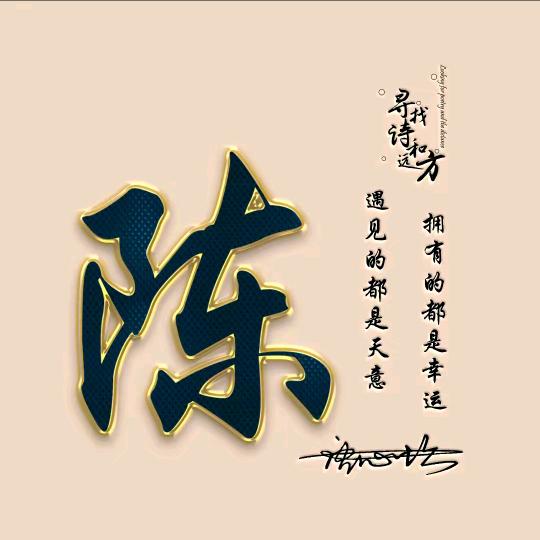 陈
寻找
诗和
远方
Looking for poetry and the distance
拥有的都是幸运
遇见的都是天意